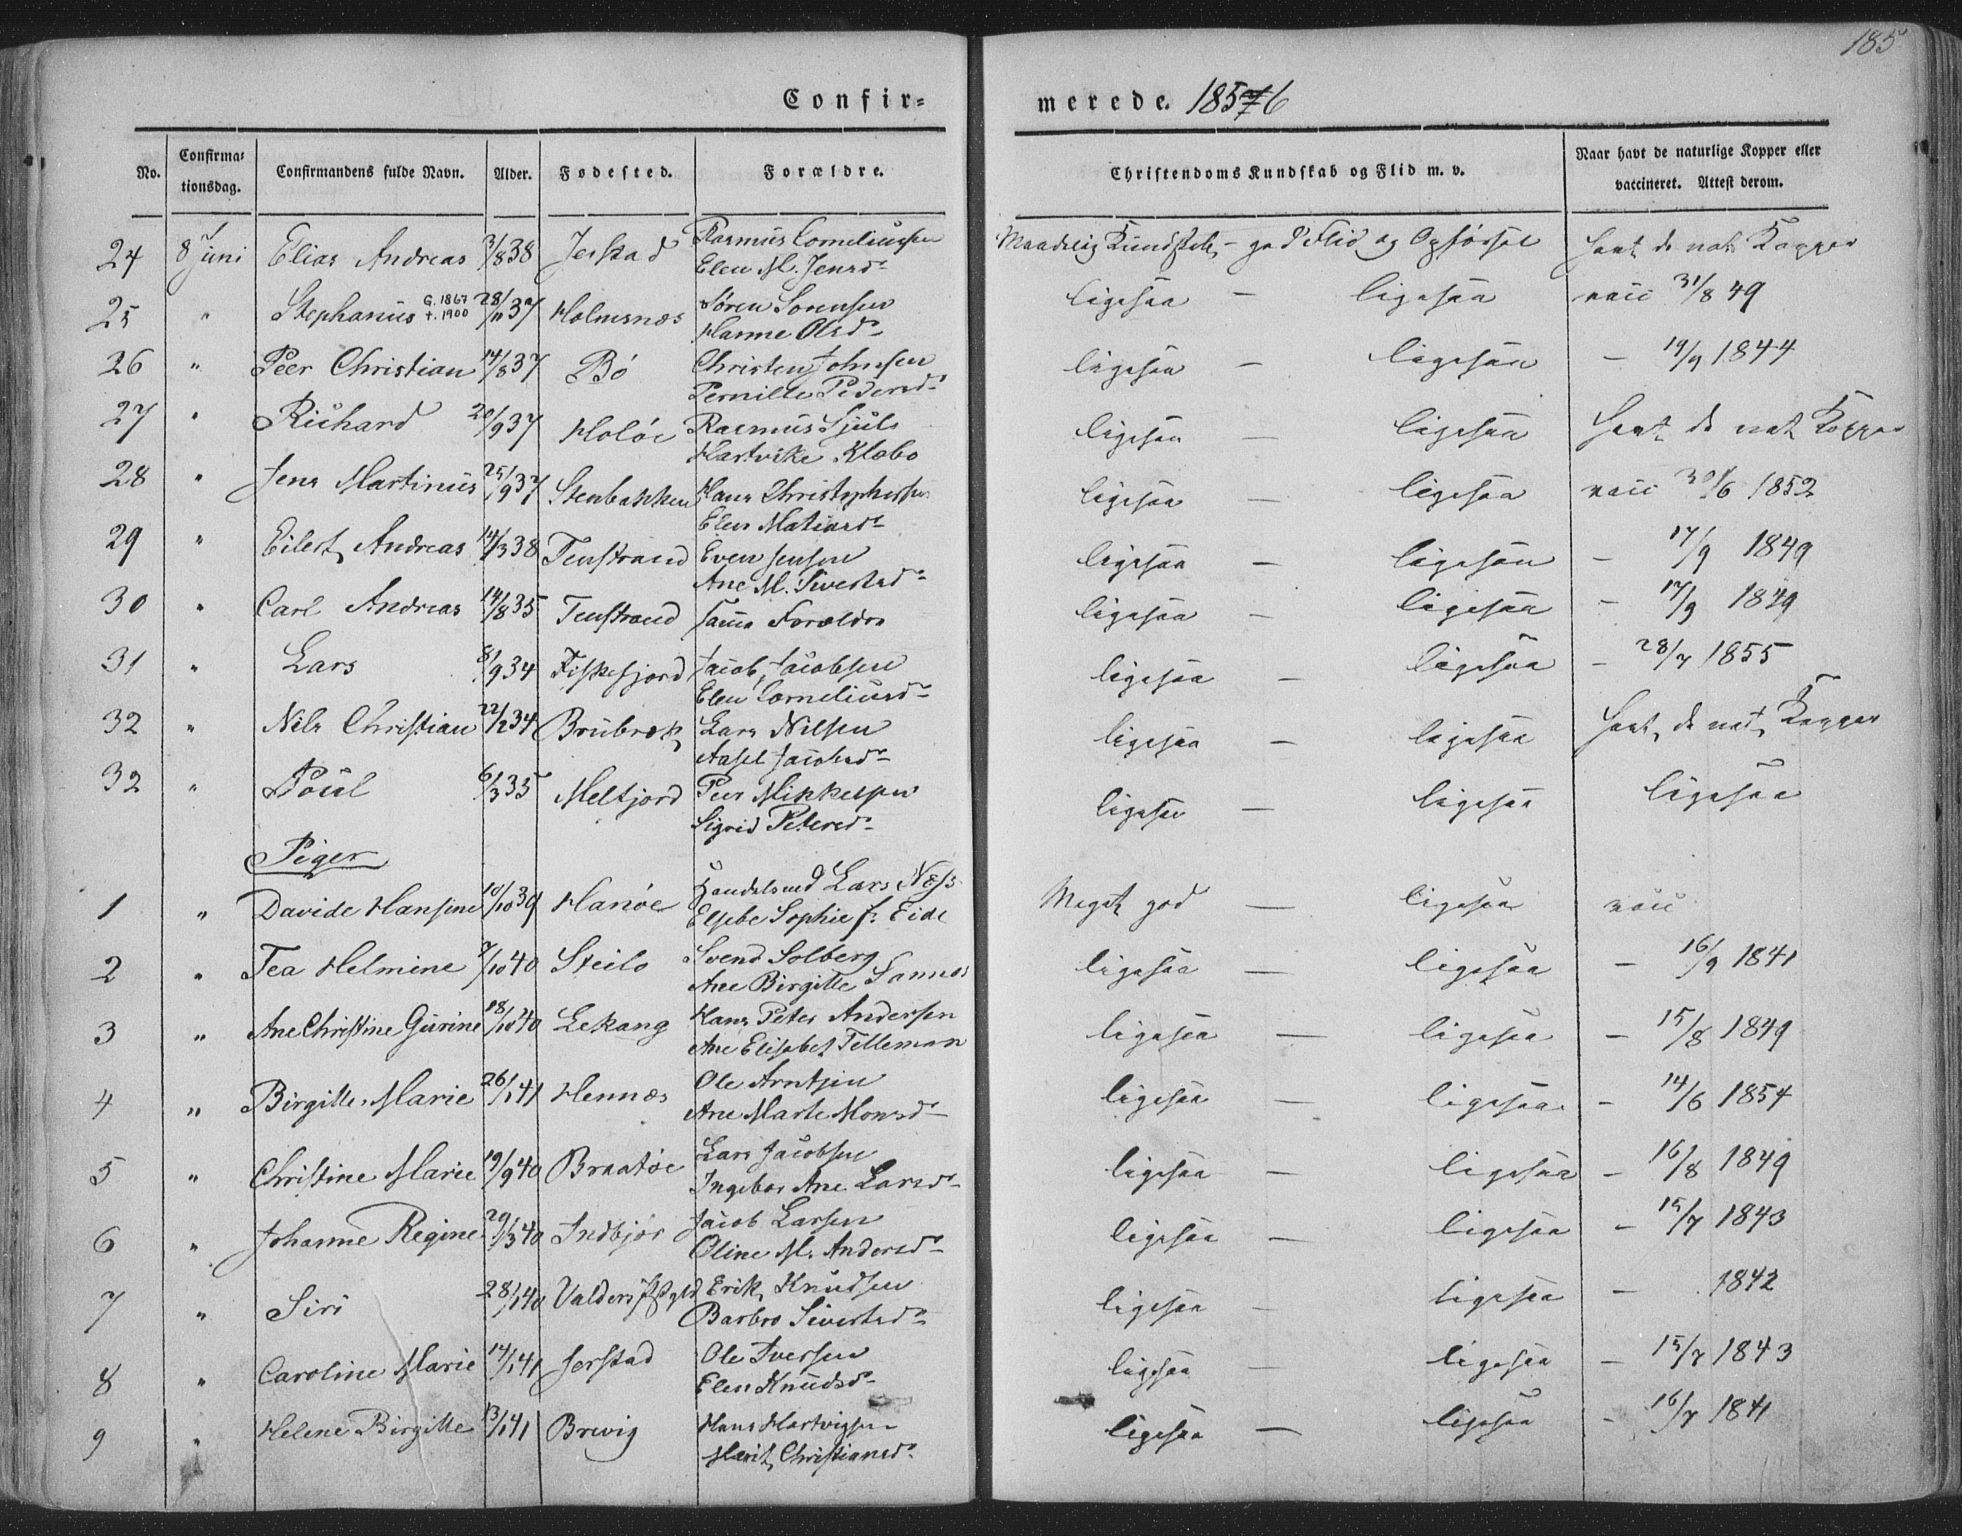 185
Confir- merede. 18576
No. Confirma-tionsdag. Confirmandens fulde Navn. Alder. Fødested. Forældre. Christendoms Kundskab og Flid m. v. Naar havt de naturlige Kopper eller vaccineret. Attest derom.
24 8 Juni Elias Andreas 3/8 38 Jerstad Rasmus Corneliussen Maadelig Kundskab – god Flid og Opførsel Havt de nat. Kopper
Elen M. Jensd.
25 " Stephanus G. 1867 †. 1900 28/11 37 Holmsnæs Søren Sørensen ligesaa – ligesaa vacc 31/8 49
Hanne Olsd.
26 " Peer Christian 14/8 37 Bö Christen Johnsen ligesaa – ligesaa – 19/9 1844
Pernille Pedersd.
27 " Richard 20/9 37 Holøe Rasmus Sjuls ligesaa – ligesaa Havt de nat Kopper
Hartvike Klæbo
28 " Jens Martinus 25/9 37 Stenbakken Hans Christophersen ligesaa – ligesaa vacc 30/6 1852
Elen Matiasd.
29 " Eilert Andreas 14/3 38 Tenstrand Even Jensen ligesaa – ligesaa – 17/9 1849
Ane M. Sivertsd.
30 " Carl Andreas 14/8 35 Tenstrand samme Forældre ligesaa – ligesaa – 17/9 1849
31 " Lars 8/9 34 Fiskefjord Jacob Jacobsen ligesaa – ligesaa – 28/7 1855
Elen Corneliusd.
32 " Nils Christian 22/2 34 Brubræk Lars Nilsen ligesaa – ligesaa Havt de nat Kopper
Aasel Jacobsd.
32 " Poul 6/3 35 Melfjord Peer Mikkelsen ligesaa – ligesaa ligesaa
Sigrid Petersd.
Piger
1 " Davide Hansine 10/10 39 Hanøe Handelsmd Lars Næss Meget god – ligesaa vacc
Elsebe Sophie f. Eide
2 " Tea Helmine 7/10 40 Steilo Svend Solberg ligesaa – ligesaa – 16/9 1841
Ane Birgitte Sannes
3 " Ane Christine Gurine 18/10 40 Lekang Hans Peter Andersen ligesaa – ligesaa – 15/8 1849
Ane Elisabet Tilleman
4 " Birgitte Marie 26/1 41 Hennæs Ole Arntsen ligesaa – ligesaa – 14/6 1854
Ane Marte Monsd.
5 " Christine Marie 19/9 40 Braatøe Lars Jacobsen ligesaa – ligesaa – 16/8 1849
Ingebor Ane Larsd.
6 " Johanne Regine 20/3 40 Indbjor Jacob Larsen ligesaa – ligesaa – 15/7 1843
Oline M. Andersd.
7 " Siri 28/1 40 Valders Erik Knudsen ligesaa – ligesaa – 1842
Barbro Sivertsd.
8 " Caroline Marie 14/1 41 Jerstad Ole Iversen ligesaa – ligesaa – 15/7 1843
Elen Knudsd.
9 " Helene Birgitte 13/1 41 Brevig Hans Hartvigsen ligesaa – ligesaa – 16/7 1841
Marit Christiansd.